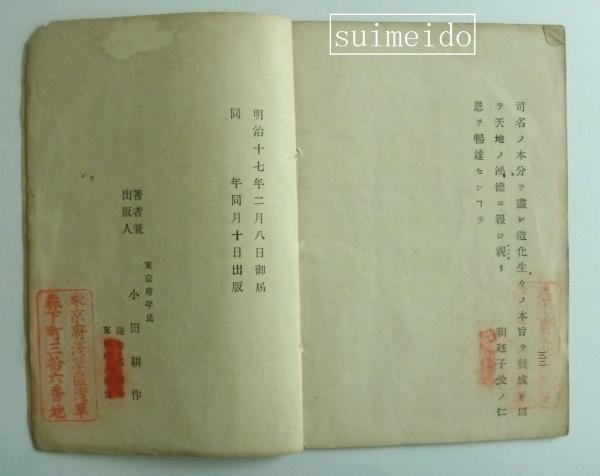 suimeido
司名ノ本分ヲ盡シ造化生々ノ本旨ヲ賛成シ以
テ天地ノ鴻德ニ報ジ親リ 朝廷子愛ノ仁
恩ヲ暢達センヿヲ
三二
明治十七年二月八日御届
同 年同月十日出版
著者兼
出版人
東京府平民
小田耕作
東京府淺草區淺草
森下町三拾六番地